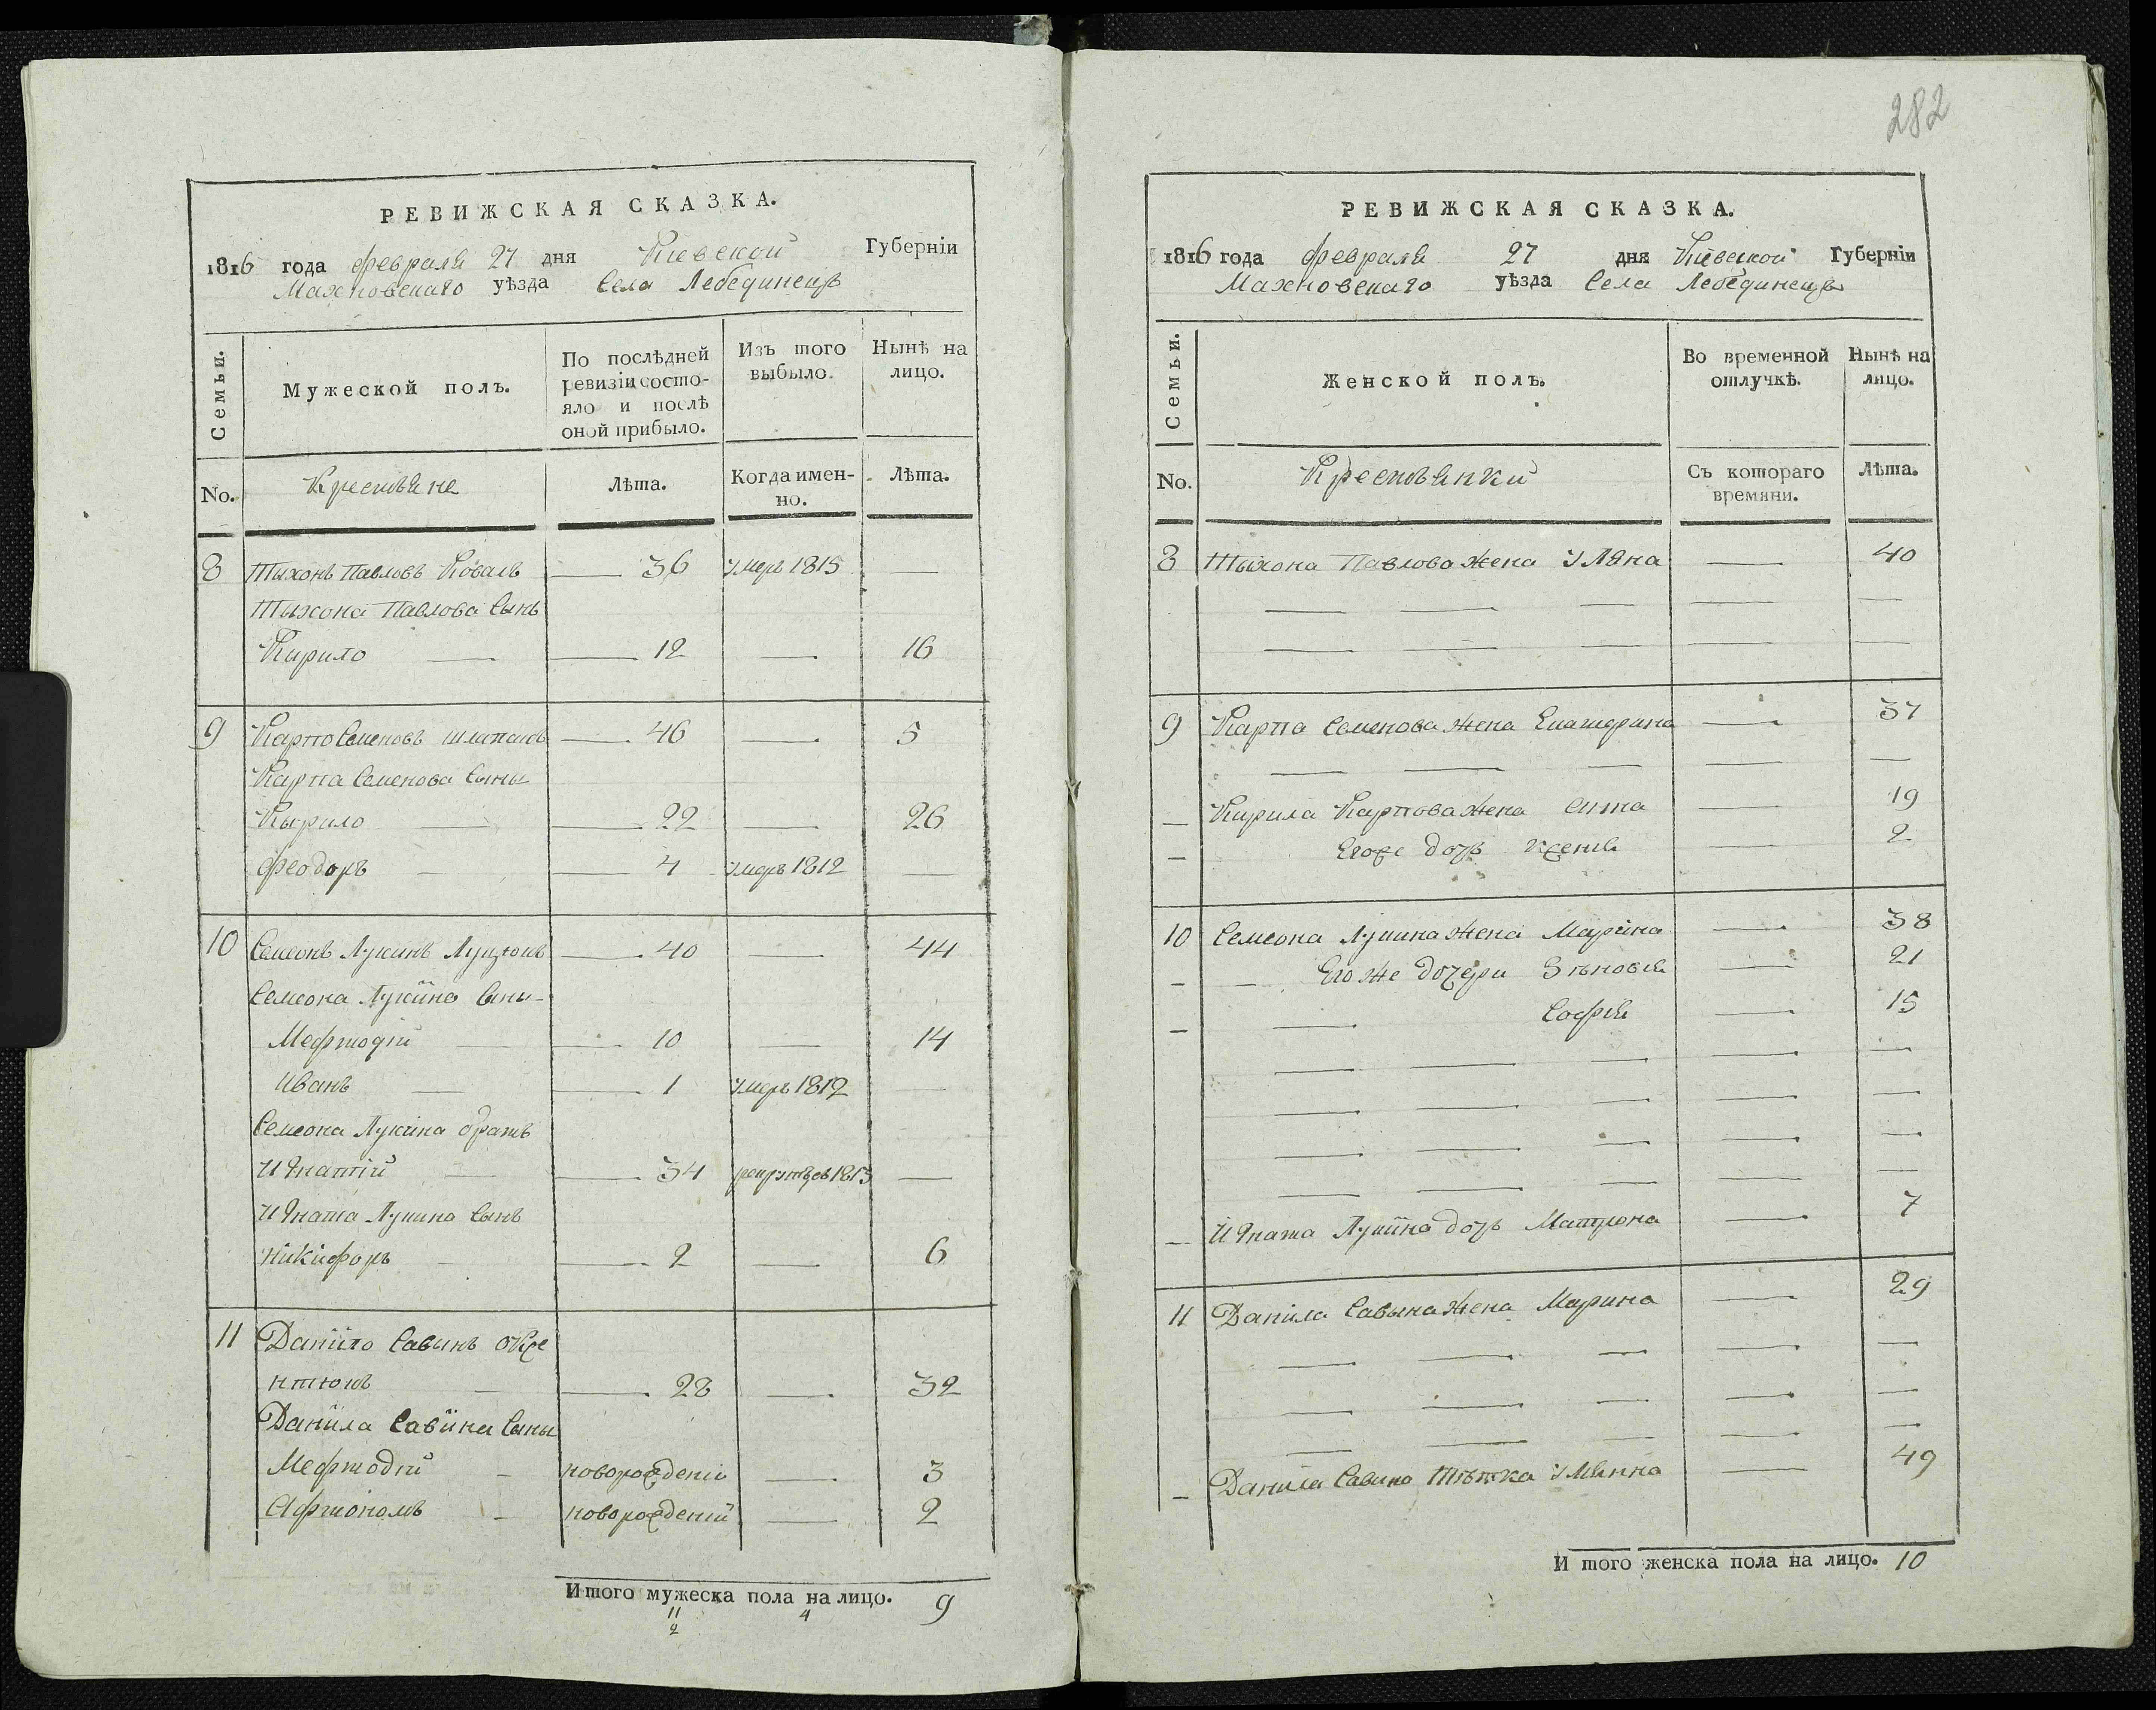 РЕВИЖСКАЯ СКАЗКА.
1816 года февраля 27 дня Киевской Губерніи
Махновскаго уѣзда Села Лебединецъ
Семьи.
Мужеской полъ.
По послѣдней ревизіи состояло и послѣ оной прибыло.
Изъ того выбыло.
Нынѣ на лицо.
No. Крестьяне Лѣта. Когда именно. Лѣта.
8 Тыхонъ Павловъ Коваль — 36 умеръ 1815 —
Тыхона Павлова Сынъ
Кирило — — 12 — 16
9 Карпо Семеновъ шлапакъ — 46 — 5
Карпа Семенова Сыны
Кырило — — 22 — 26
Феодоръ — — 4 умеръ 1812 —
10 Семеонъ Лукинъ — 40 — 44
Семеона Лукіина Сыны
Мефтодій — — 10 — 14
Иванъ — — 1 умеръ 1812 —
Семеона Лукіна братъ
Игнатій — — 34 1813 —
Игната Лукина Сынъ
Нікіфоръ — — 2 — 6
11 Даніило Савинъ Оксе
нтюкъ — — 28 — 32
Даніила Савіина Сыны
Мефтодій — новорожденій — 3
Афтономъ — новорожденій — 2
Итого мужеска пола на лицо. 9
11 4
2
282
РЕВИЖСКАЯ СКАЗКА.
1816 года февраля 27 дня Кіевской Губерніи
Махновскаго уѣзда Села Лебединецъ
Семьи.
Женской полъ.
Во временной отлучкѣ.
Нынѣ на лицо.
No. Крестьянки Съ котораго времяни. Лѣта.
8 Тыхона Павлова жена Уляна — 40
— — — — —
— — — — —
9 Карпа Семенова жена Екатерина — 37
— — — — —
— Кирила Карпова жена Анна — 19
— Егоже дочь — 2
10 Семеона Лукина жена Маріна — 38
— — Его же дочери Зѣновія — 21
— — Софія — 15
— — — — —
— — — — —
— — — — —
— — — — —
— Игната Лукіина дочь Матрона — 7
11 Даніла Савына жена Марина — 29
— — — — —
— — — — —
— — — — —
— Данила Савина Тѣтка Уляна — 49
И того женска пола на лицо. 10